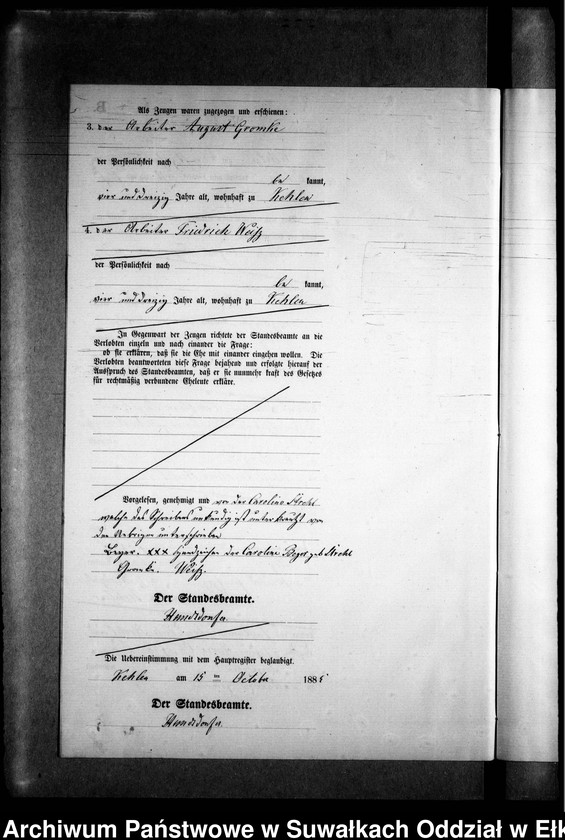 Als Zeugen waren zugezogen und erschienen:
3. der Arbeiter August Gromki
der Persönlichkeit nach
be kannt,
vier und dreizig Jahre alt, wohnhaft zu Kehlen
4. der Arbeiter Friedrich Weiß
der Persönlichkeit nach
be kannt,
vier und dreizig Jahre alt, wohnhaft zu Kehlen
In Gegenwart der Zeugen richtete der Standesbeamte an die
Verlobten einzeln und nach einander die Frage:
ob sie erklären, daß sie die Ehe mit einander eingehen wollen. Die
Verlobten beantworteten diese Frage bejahend und erfolgte hierauf der
Ausspruch des Standesbeamten, daß er sie nunmehr kraft des Gesetzes
für rechtmäßig verbundene Eheleute erkläre.
Vorgelesen, genehmigt und von der Caroline Strehl
welche des Schreibens unkundig ist unterkreuzt von
den Uebrigen unterschrieben
XXX Handzeichen der Caroline geb Strehl
Gromki. Weiß.
Der Standesbeamte.
Die Uebereinstimmung mit dem Hauptregister beglaubigt.
Kehlen am 15 ten October 188
Der Standesbeamte.
Archiwum Państwowe w Suwałkach Oddział w Ełk